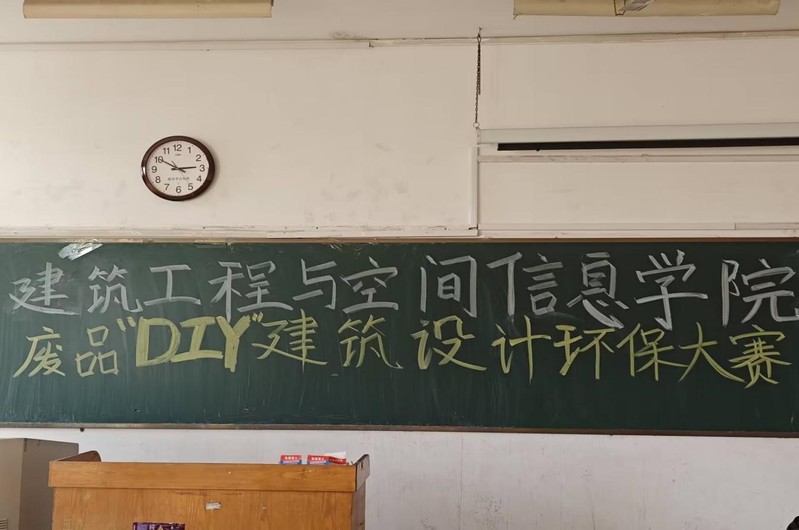 建筑工程与空间信息学院
废品"DIY"建筑设计环保大赛
12
1
2
3
4
5
6
7
8
9
10
11